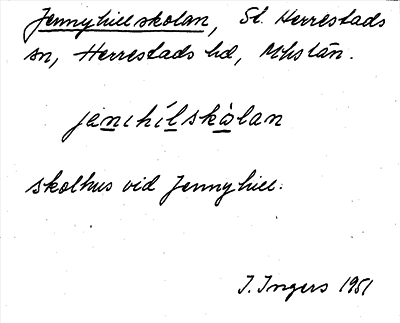 Jennyhillskolan, St. Herrestads
sn, Herrestads hd, Mhs län.
jænıhílskὰlan
skolhus vid Jennyhill.
I. Ingers 1951